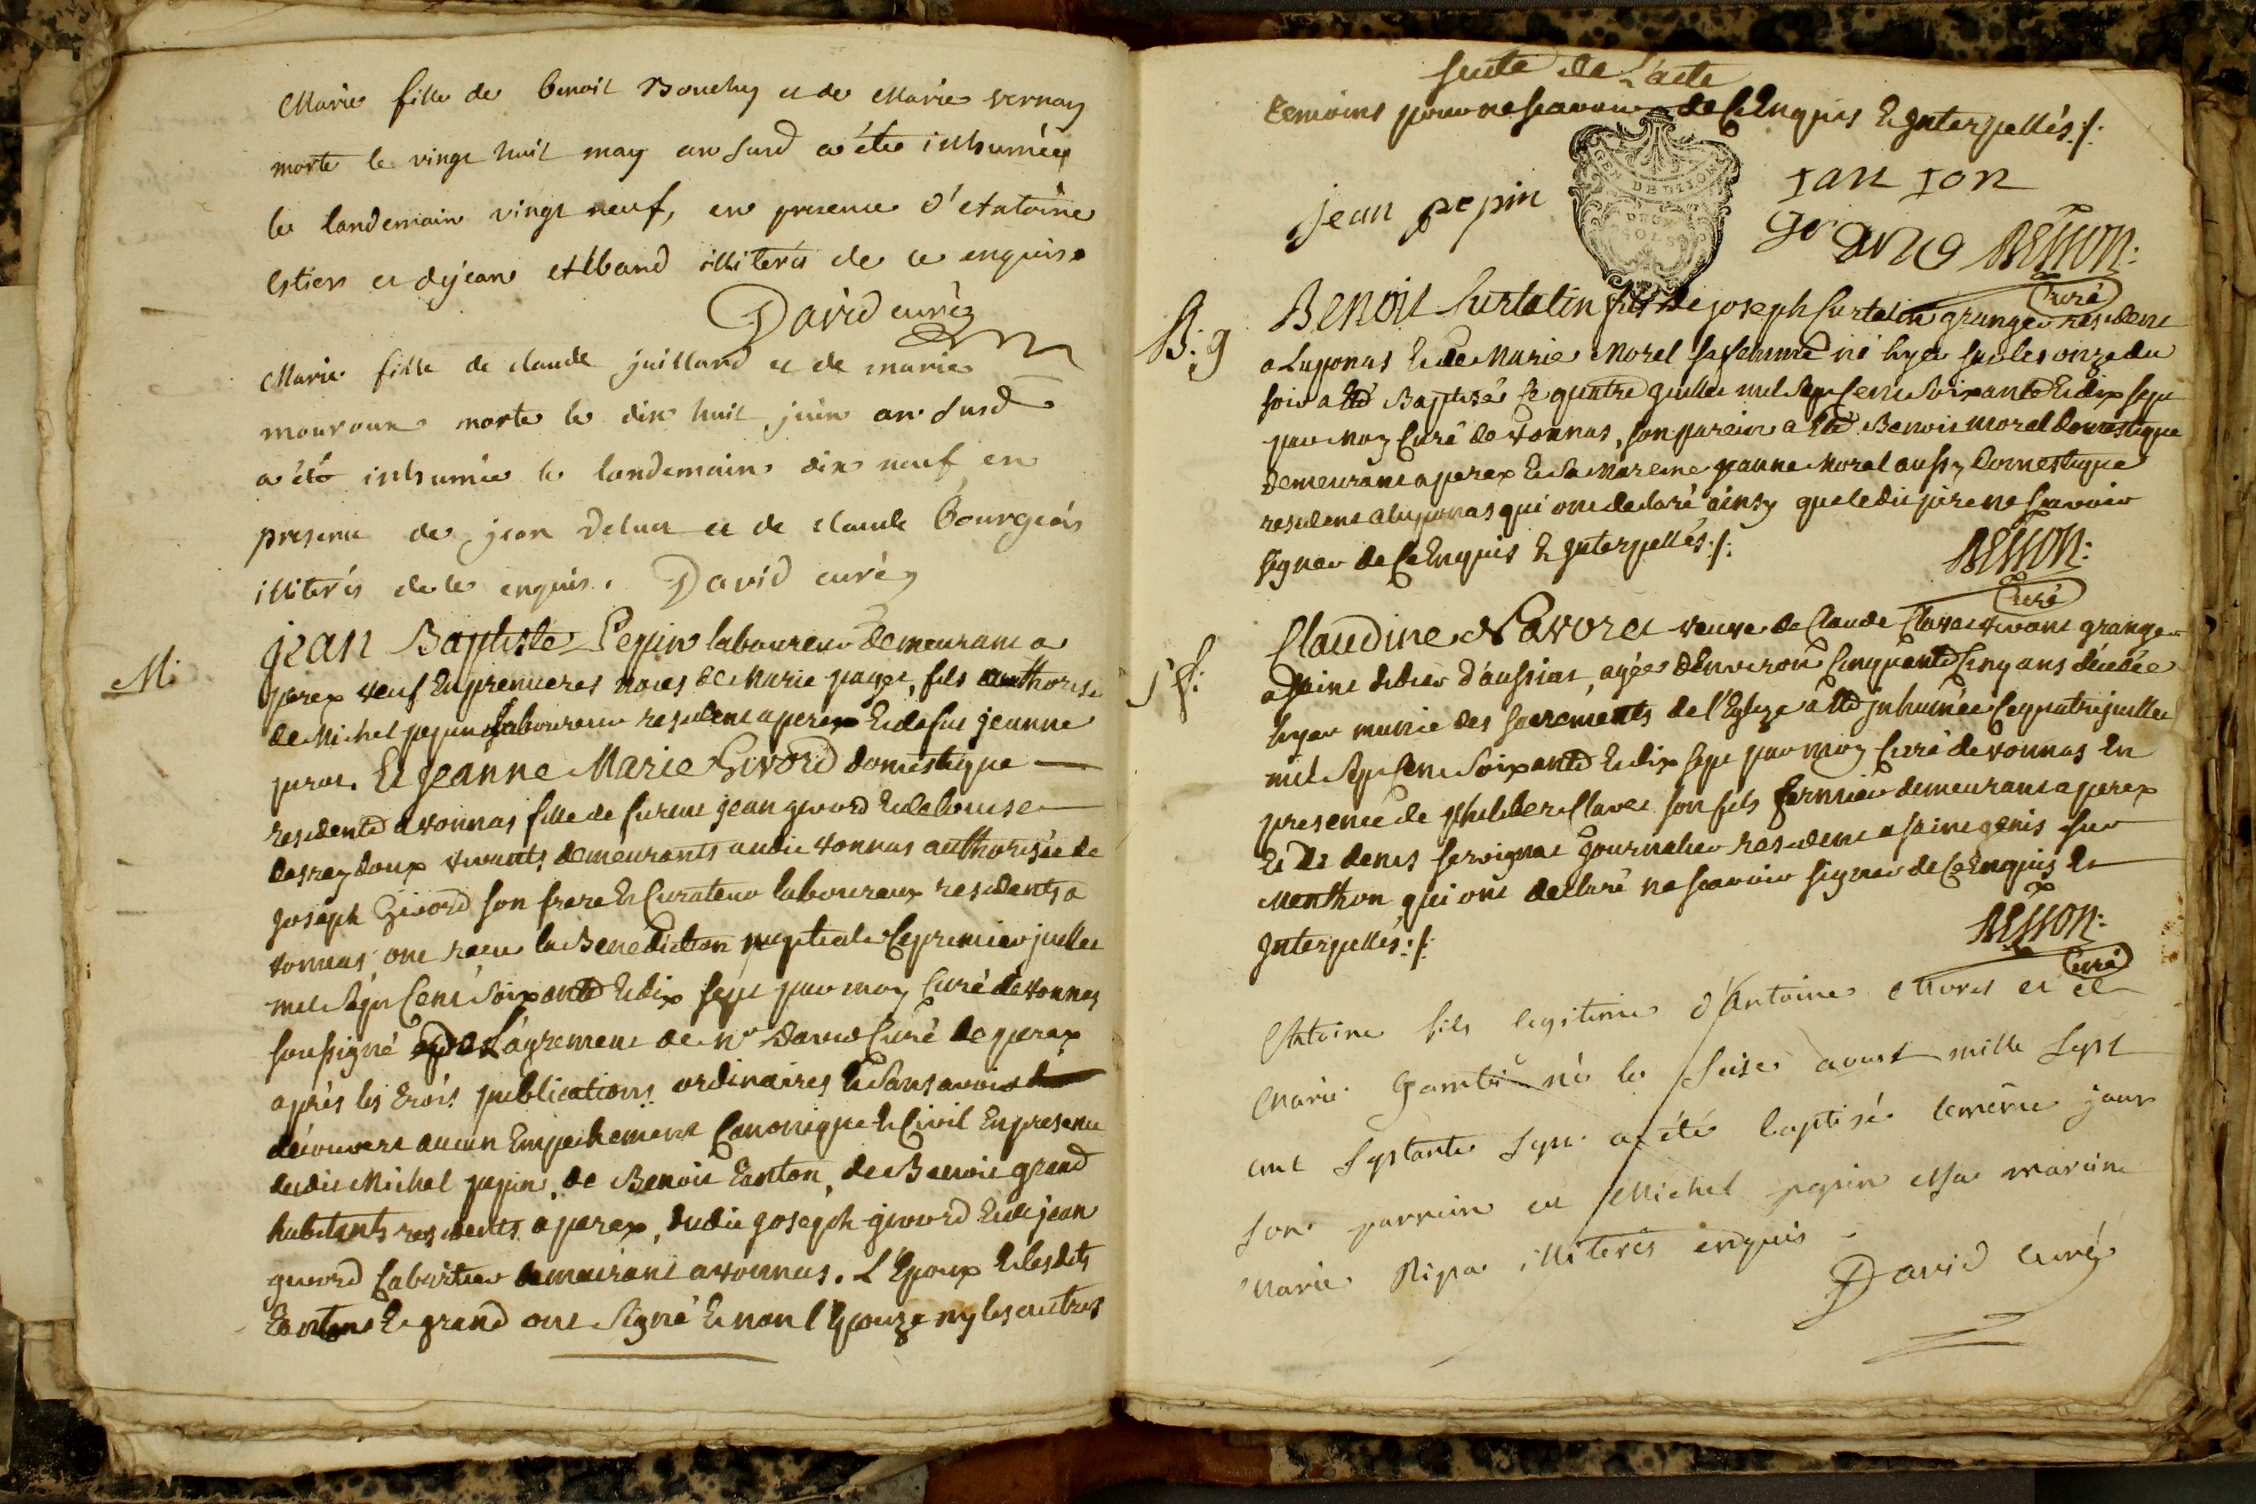 Marie fille de benoit Bouchy et de Marie vernay
morte le vingt huit may an susd a été inhumée
le landemain vingt neuf, en presence d'Antoine
Estier et dejean Alband illiterés de ce enquis.
David curéz
Marie fille de claude juillard et de marie
mouroux morte le dix huit juin an susd
a été inhumée le landemain dix neuf en
presence de jean Delua et de claude bourgeois
illiterés de ce enquis. David curéz
M:
jean Baptiste Pepin laboureur demeurant a
perex veuf En premieres noces de Marie paget, fils authorisé
de Michel pepin laboureur resident a perex Et de fue jeanne
puroz. Et Jeanne Marie Givord domestique
residente a vonnas fille de furent jean givord Et de Louise
desreydoux vivants demeurants audit vonnas authorisée de
Joseph Givord son frere Et Curateur laboureux residents a
vonnas, ont reçu la Benediction nuptiale Ce premier juillet
mil Sept Cent Soixante Et dix sept par moy Curé de vonnas
soussigné de L'agrement de Mr David Curé de perex
après les trois publications ordinaires Et sans avoir
découvert aucun Empechement Canonique Et Civil En presence
dudit Michel pepin, de Benoit Tanton, de Benoit grand
habitants residents a perex, dudit Joseph givord Et de jean
givord Cabartier demeurant a vonnas. L'Epoux Et lesdits
Tanton Et grand ont Signé Et non l'Epouze ny les autres
suite de L'acte
temoins pour ne scavoir de Ce Enquis Et Interpellés ./.
GEN DE DIJON
DEUX
SOLS
jean pepin
Besson:
Curé
B: g
Benoit Curtelin fils de joseph Curtelin granger resident
a Luponas Et de Marie Morel sa femme né hyer sur les onze du
soir a Eté Baptisé Ce quatre Juillet mil Sept Cent Soixante Et dix sept
par moy Curé de vonnas, son parein a Eté Benoit Morel domestique
demeurant a perex Et Sa Mareine jeanne Morel aussy Domestique
residente a luponas qui ont declaré ainsy que ledit pere ne scavoir
signer de Ce Enquis Et Interpellés ./.
Besson:
Curé
S f:
Claudine Navoret veuve de Claude Clavet vivant granger
a Saint didier d'aussiat, agée d'Environ Cinquante Cinq ans décédée
hyer munie des sacrements de l'Eglize a Eté inhumée Ce quatre juillet
mil Sept Cent Soixante Et dix sept par moy Curé de vonnas En
presence de philiber Clavet son fils fermier demeurant a perex
Et de denis servignat Journalier resident a saint genis sur
Menthon qui ont declaré ne scavoir signer de Ce Enquis Et
Interpellés ./.
Besson:
Curé
Antoine fils legitime d'Antoine et de
Marie né le seise aoust mille sept
cent septante sept a été baptisé le même jour
son parrain est Michel pepin et sa maraine
Marie Ripa illiterés enquis.
David Curé